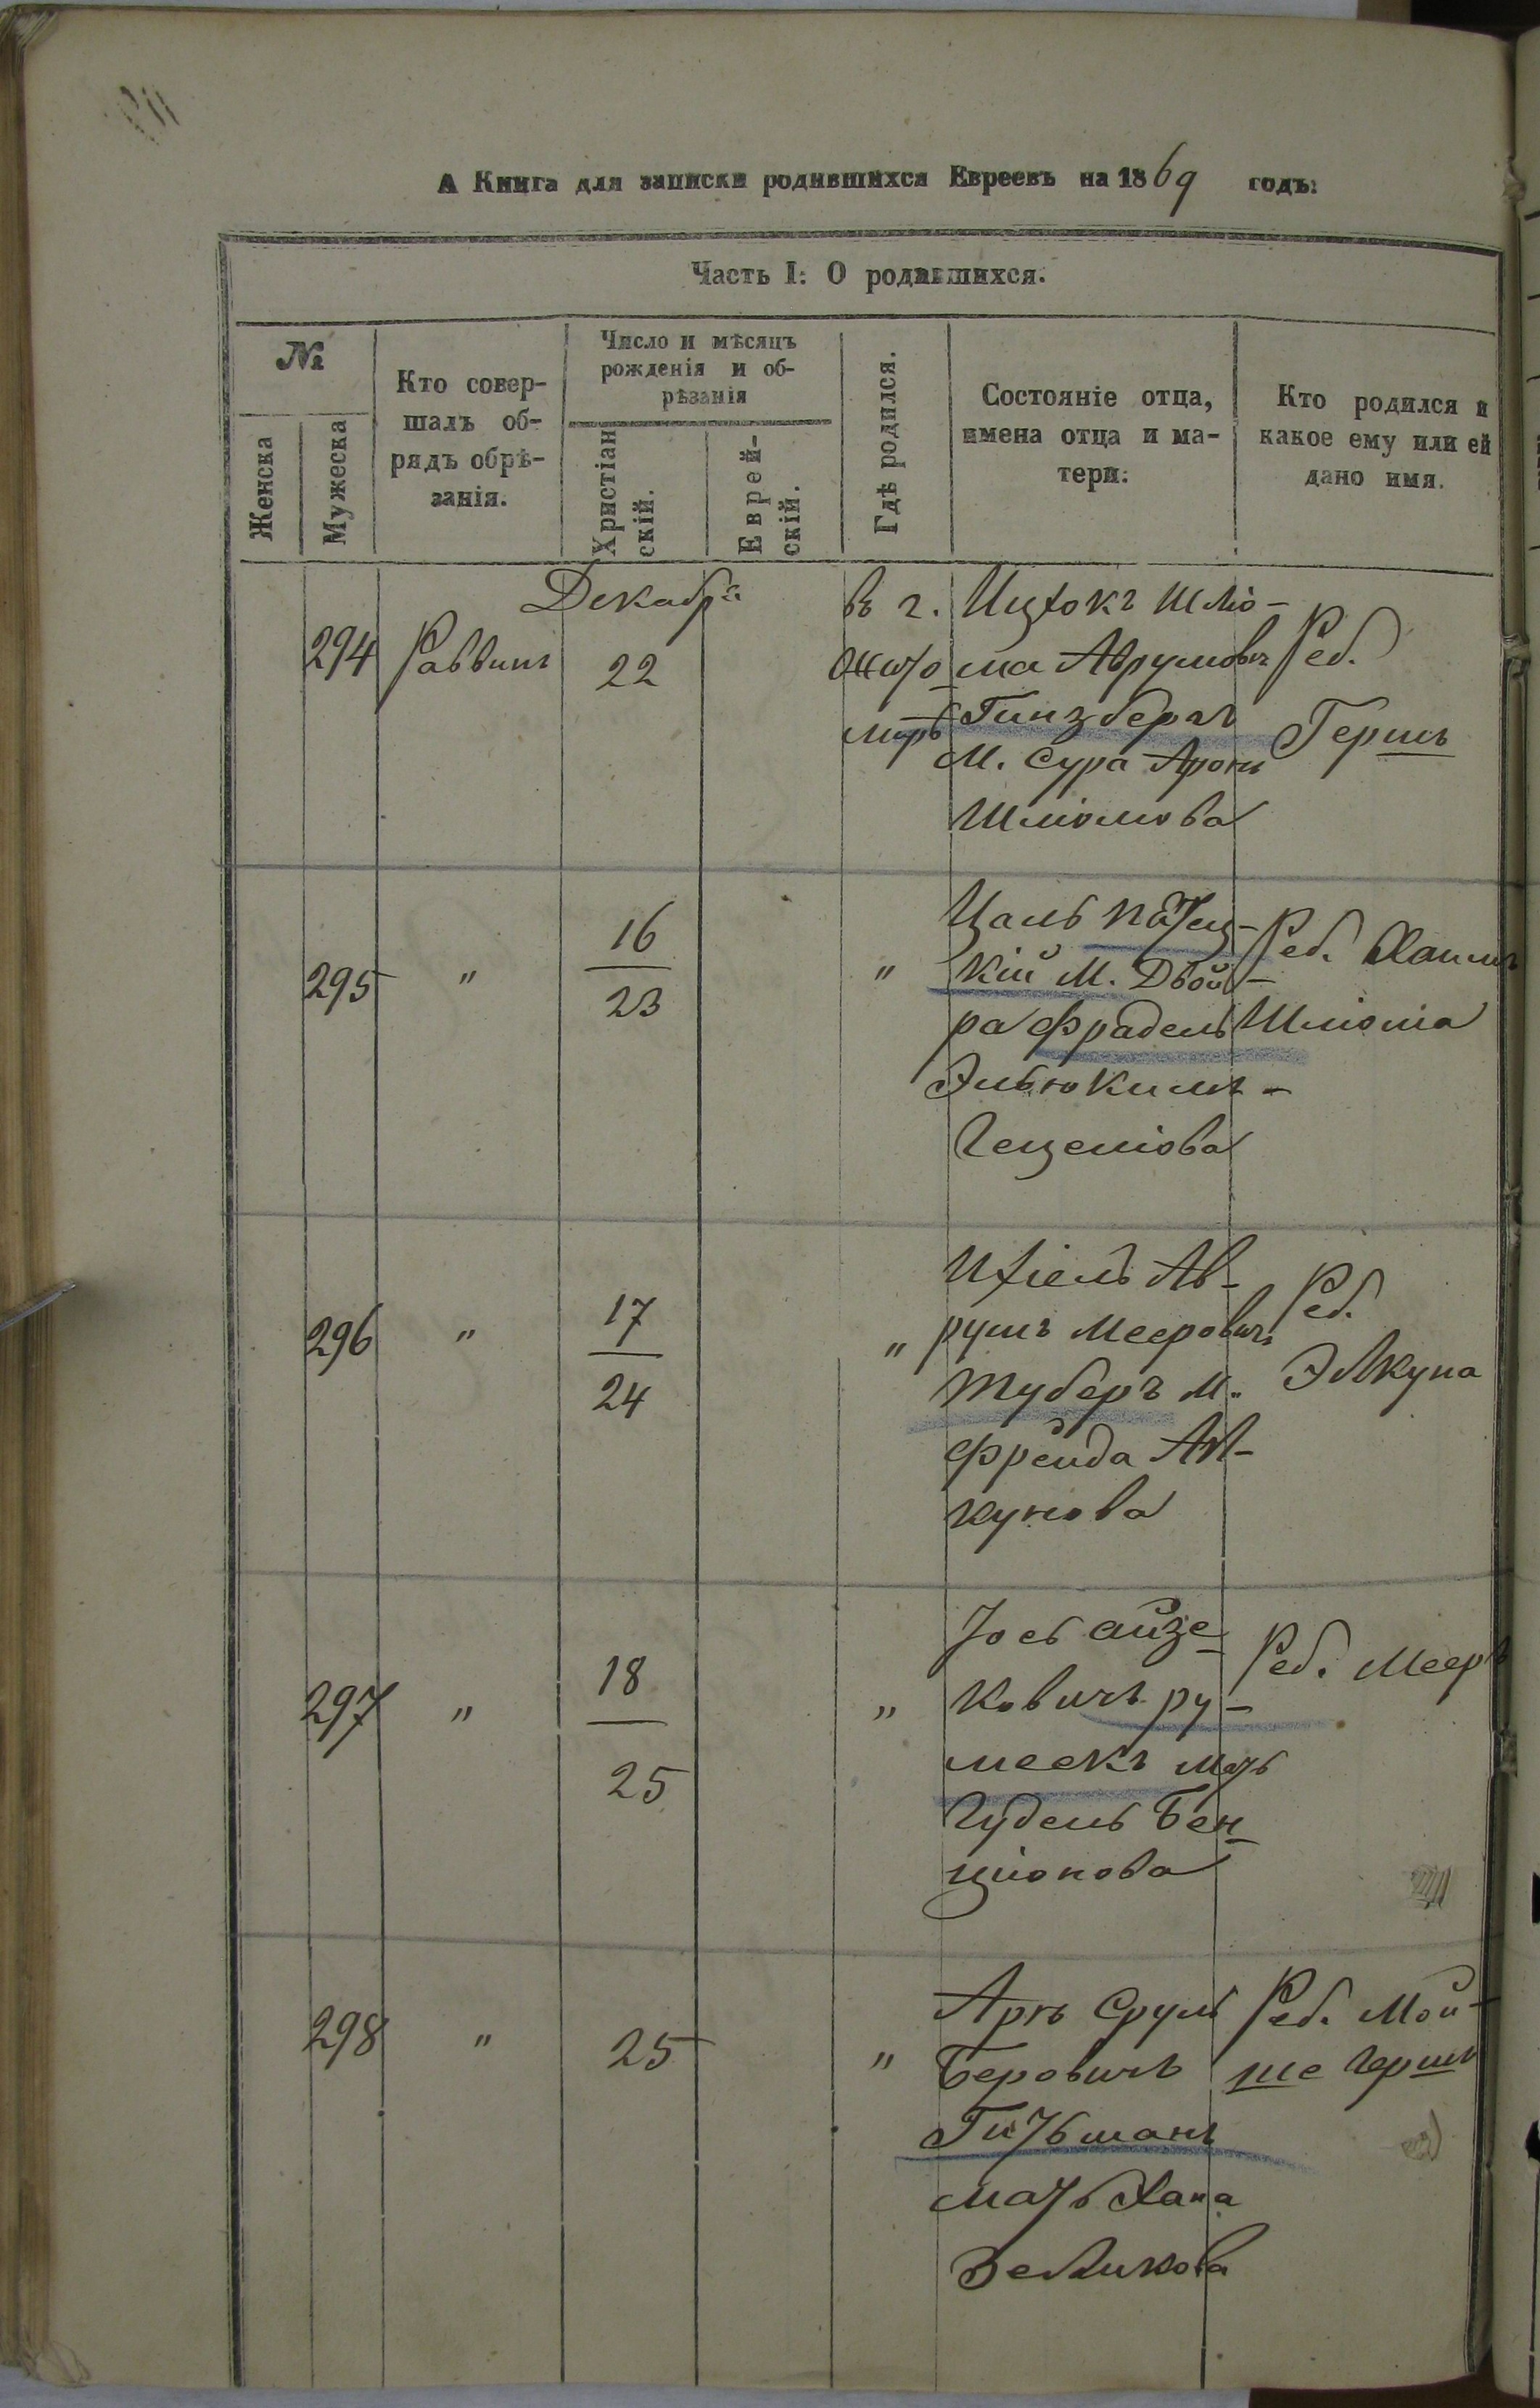 А Книга для записки родившихся Евреевъ на 1869 годъ:
Часть I: О родившихся.
№
Женска
Мужеска
Кто совер-
шалъ об-
рядъ обрѣ-
занія.
Число и мѣсяцъ
рожденія и об-
рѣзанія
Христіан
скій.
Еврей-
скій.
Гдѣ родился.
Состояніе отца,
имена отца и ма-
тери:
Кто родился и
какое ему или ей
дано имя.
Декабрь
294
Раввинъ
22
въ г.
Жито
миръ
Ицхокъ Шліо-
ма Аврумовъ
Гинзбергъ
М. Сура Аронъ
Шліомова
Реб.
Гершъ
295
"
16
23
"
Цаль Патец-
кій М. Двой-
ра Фрадель
Эльюкимъ-
Гецеліова
Реб. Хаимъ
Шліома
296
"
17
24
"
Ихіель Ав-
румъ Мееровичъ
Туберъ М.
Фрейда Ал-
кунова
Реб.
Элкуна
297
"
18
25
"
Іось Айзе-
ковичъ ру-
меекъ мать
Гудель Бен-
ціонова
Реб. Мееръ
298
"
25
"
Аронъ Сруль
Беровичъ
Гитьманъ
мать Хана
Зеликова
Реб. Мой-
ше Гершъ